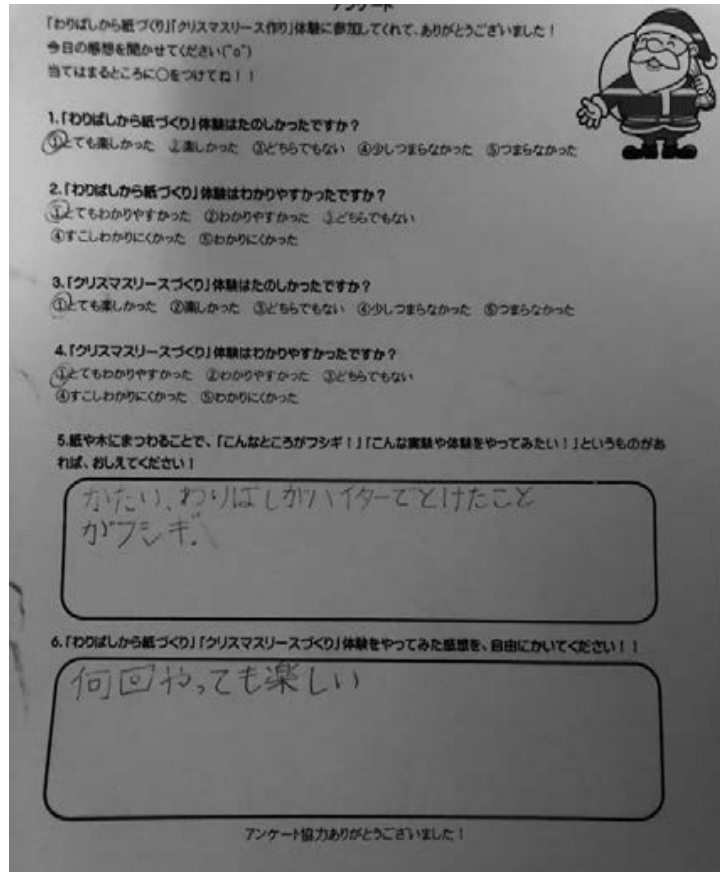 アンケート
「わりばしから紙づくり」「クリスマスリース作り」体験に参加してくれて、ありがとうございました！
今日の感想を聞かせてください(^o^)
当てはまるところに○をつけてね！！
1.「わりばしから紙づくり」体験はたのしかったですか？
①とても楽しかった ②楽しかった ③どちらでもない ④少しつまらなかった ⑤つまらなかった
2.「わりばしから紙づくり」体験はわかりやすかったですか？
①とてもわかりやすかった ②わかりやすかった ③どちらでもない
④すこしわかりにくかった ⑤わかりにくかった
3.「クリスマスリースづくり」体験はたのしかったですか？
①とても楽しかった ②楽しかった ③どちらでもない ④少しつまらなかった ⑤つまらなかった
4.「クリスマスリースづくり」体験はわかりやすかったですか？
①とてもわかりやすかった ②わかりやすかった ③どちらでもない
④すこしわかりにくかった ⑤わかりにくかった
5.紙や木にまつわることで、「こんなところがフシギ！」「こんな実験や体験をやってみたい！」というものがあ
れば、おしえてください！
かたい、わりばしがハイターでとけたこと
がフシギ.
6.「わりばしから紙づくり」「クリスマスリースづくり」体験をやってみた感想を、自由にかいてください！！
何回やっても楽しい
アンケート協力ありがとうございました！